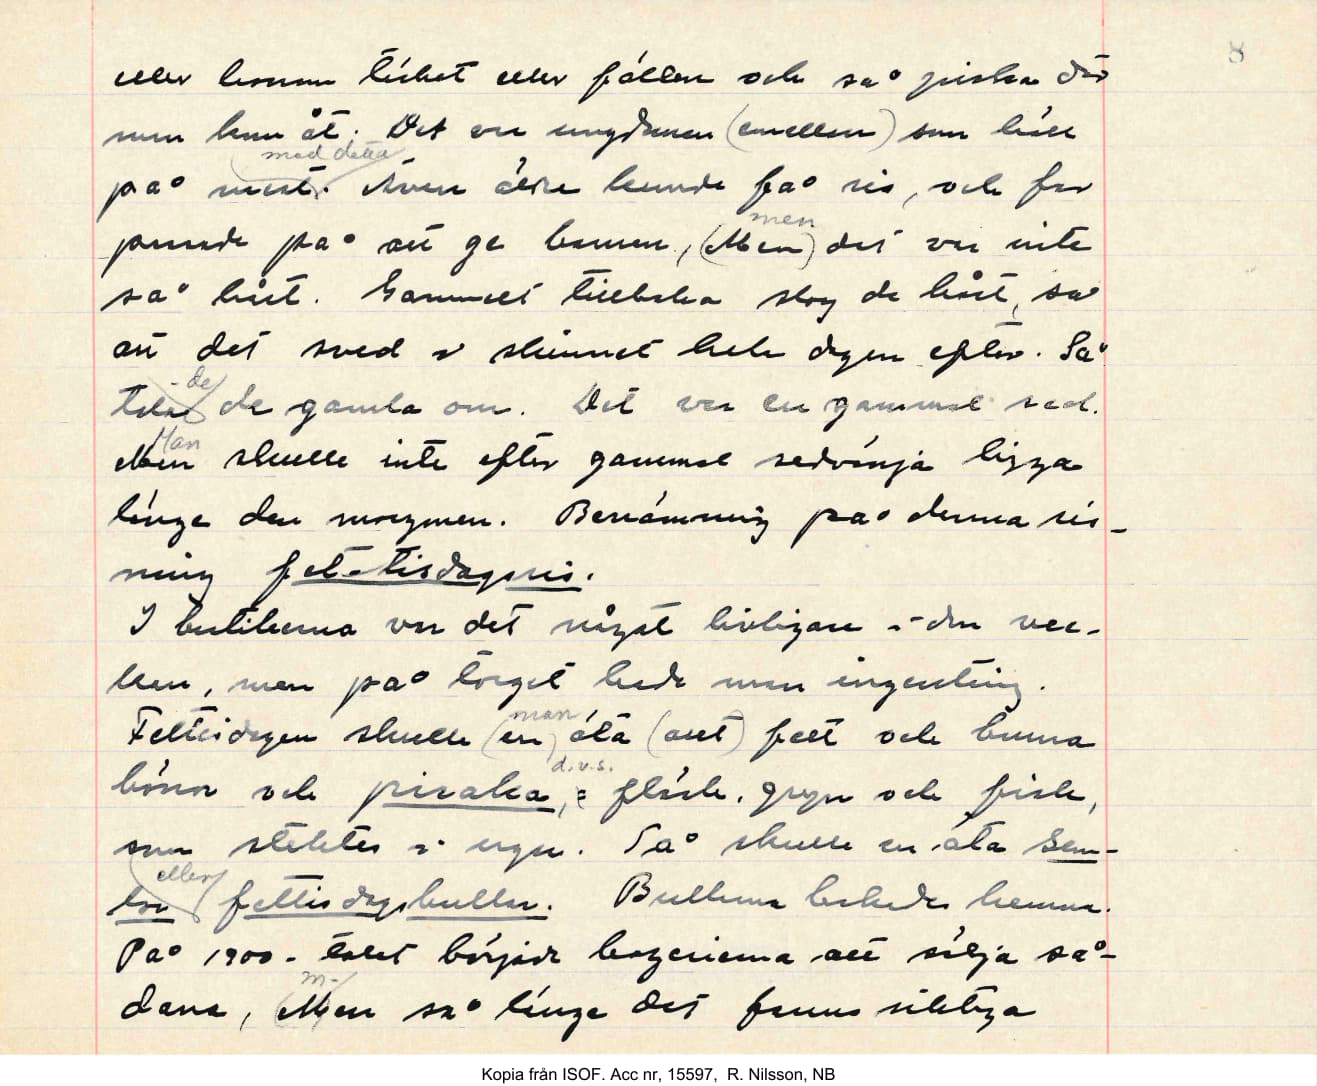 8
eller komma täcket eller fällen och så piska där
man kom åt. Det var ungdomen (emellan) som höll
med detta
på mest. Även äldre kunde få ris, och far
men
passade på att ge barnen, (Men) det var inte
så hårt. Gammalt tillbaka slog de hårt, så
att det sved i skinnet hela dagen efter. Så
de
talade de gamla om. Det var en gammal sed.
Man
Men skulle inte efter gammal sedvänja ligga
länge den morgonen. Benämning på denna ris-
ning fet-tisdagsris.
I butikerna var det något livligare i den vec-
kan, men på torget hade man ingenting.
man
Fettisdagen skulle (en) äta (allt) fett och bruna
d.v.s.
bönor och pisalka, = fläsk, gryn och fisk,
som stektes i ugn. Så skulle en äta sem-
eller
lor fettisdagsbullar. Bullarna bakades hemma.
På 1900-talet började bagerierna att sälja så-
m-
dana, (Men så länge det fanns riktiga
Kopia från ISOF. Acc nr, 15597, R. Nilsson, NB